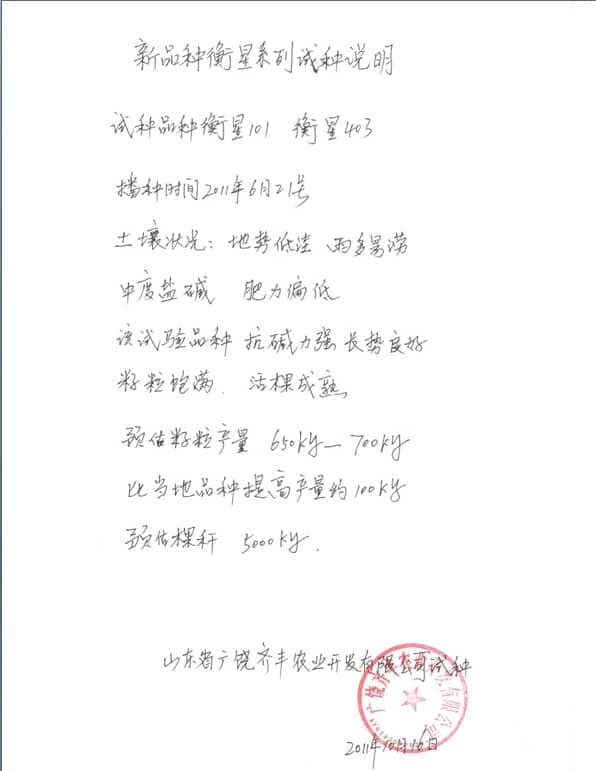 新品种衡星系列试种说明
试种品种衡星101 衡星403
播种时间2011年6月21号
土壤状况：地势低洼 雨多易涝
中度盐碱 肥力偏低
该试验品种 抗碱力强 长势良好
籽粒饱满. 活棵成熟
预估籽粒产量 650kg—700kg
比当地品种提高产量约100kg
预估棵秆 5000kg.
山东省广饶齐丰农业开发有限公司试种
2011年10月16日